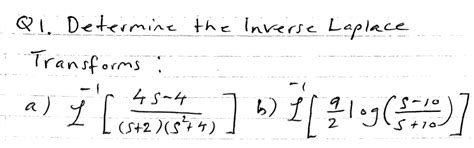 Q1. Determine the Inverse Laplace
Transforms :
a) ℒ⁻¹ [ (4s-4) / ((s+2)(s²+4)) ] b) ℒ⁻¹ [ 9/2 log( (s-10) / (s+10) ) ]